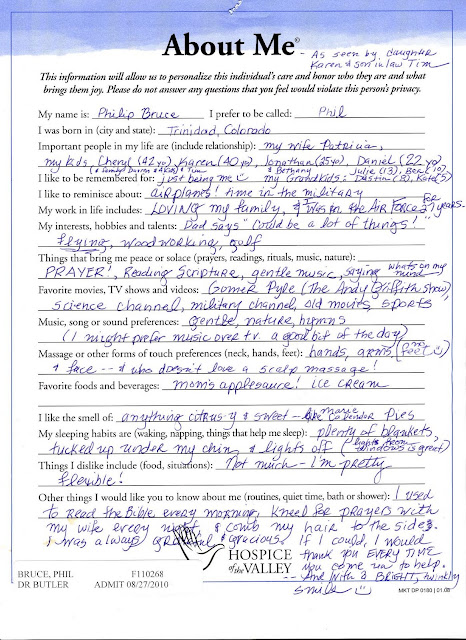 About Me® - As seen by daughter
Karen & son in law Tim
This information will allow us to personalize this individual's care and honor who they are and what
brings them joy. Please do not answer any questions that you feel would violate this person's privacy.
My name is: Philip Bruce I prefer to be called: Phil
I was born in (city and state): Trinidad, Colorado
Important people in my life are (include relationship): my wife Patricia,
my kids, Cheryl (42 yo) Karen (40 yo), Jonathan (25 yo), Daniel (22 yo)
& Tim & Bethany Julie (13), Ben (10)
I like to be remembered for: just being me my Grandkids: Dustin (8), Kate (5)
I like to reminisce about: airplanes! time in the military
My work in life includes: LOVING my family, & I was in the AIR FORCE for 21 years.
My interests, hobbies and talents: Dad says "Could be a lot of things!"
flying, woodworking, golf
Things that bring me peace or solace (prayers, readings, rituals, music, nature):
PRAYER!, Reading Scripture, gentle music, saying what's on my mind
Favorite movies, TV shows and videos: Gomer Pyle (The Andy Griffith Show),
science channel, military channel, old movies, sports
Music, song or sound preferences: gentle, nature, hymns
(I might prefer music over t.v. a good bit of the day)
Massage or other forms of touch preferences (neck, hands, feet): hands, arms (no feet)
& face -- & who doesn't love a scalp massage!
Favorite foods and beverages: mom's applesauce! ice cream
I like the smell of: anything citrus-y & sweet -- like Marie Callendar Pies
My sleeping habits are (waking, napping, things that help me sleep): plenty of blankets,
tucked up under my chin, & lights off (lights from windows is great)
Things I dislike include (food, situations): Not much - I'm pretty
flexible!
Other things I would like you to know about me (routines, quiet time, bath or shower): I used
to read the Bible every morning, kneel for prayers with
my wife every night, & comb my hair to the side.
I was always grateful & gracious. If I could, I would
thank you EVERY TIME
you come in to help.
-- And with a BRIGHT, twinkly
smile
HOSPICE
of the VALLEY
BRUCE, PHIL F110268
DR BUTLER ADMIT 08/27/2010
MKT DP 0180 | 01.08